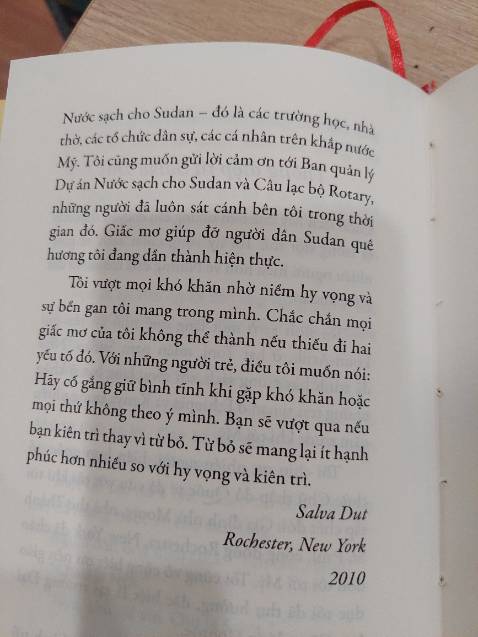 Nước sạch cho Sudan – đó là các trường học, nhà
thờ, các tổ chức dân sự, các cá nhân trên khắp nước
Mỹ. Tôi cũng muốn gửi lời cảm ơn tới Ban quản lý
Dự án Nước sạch cho Sudan và Câu lạc bộ Rotary,
những người đã luôn sát cánh bên tôi trong thời
gian đó. Giấc mơ giúp đỡ người dân Sudan quê
hương tôi đang dần thành hiện thực.
Tôi vượt mọi khó khăn nhờ niềm hy vọng và
sự bền gan tôi mang trong mình. Chắc chắn mọi
giấc mơ của tôi không thể thành nếu thiếu đi hai
yếu tố đó. Với những người trẻ, điều tôi muốn nói:
Hãy cố gắng giữ bình tĩnh khi gặp khó khăn hoặc
mọi thứ không theo ý mình. Bạn sẽ vượt qua nếu
bạn kiên trì thay vì từ bỏ. Từ bỏ sẽ mang lại ít hạnh
phúc hơn nhiều so với hy vọng và kiên trì.
Salva Dut
Rochester, New York
2010